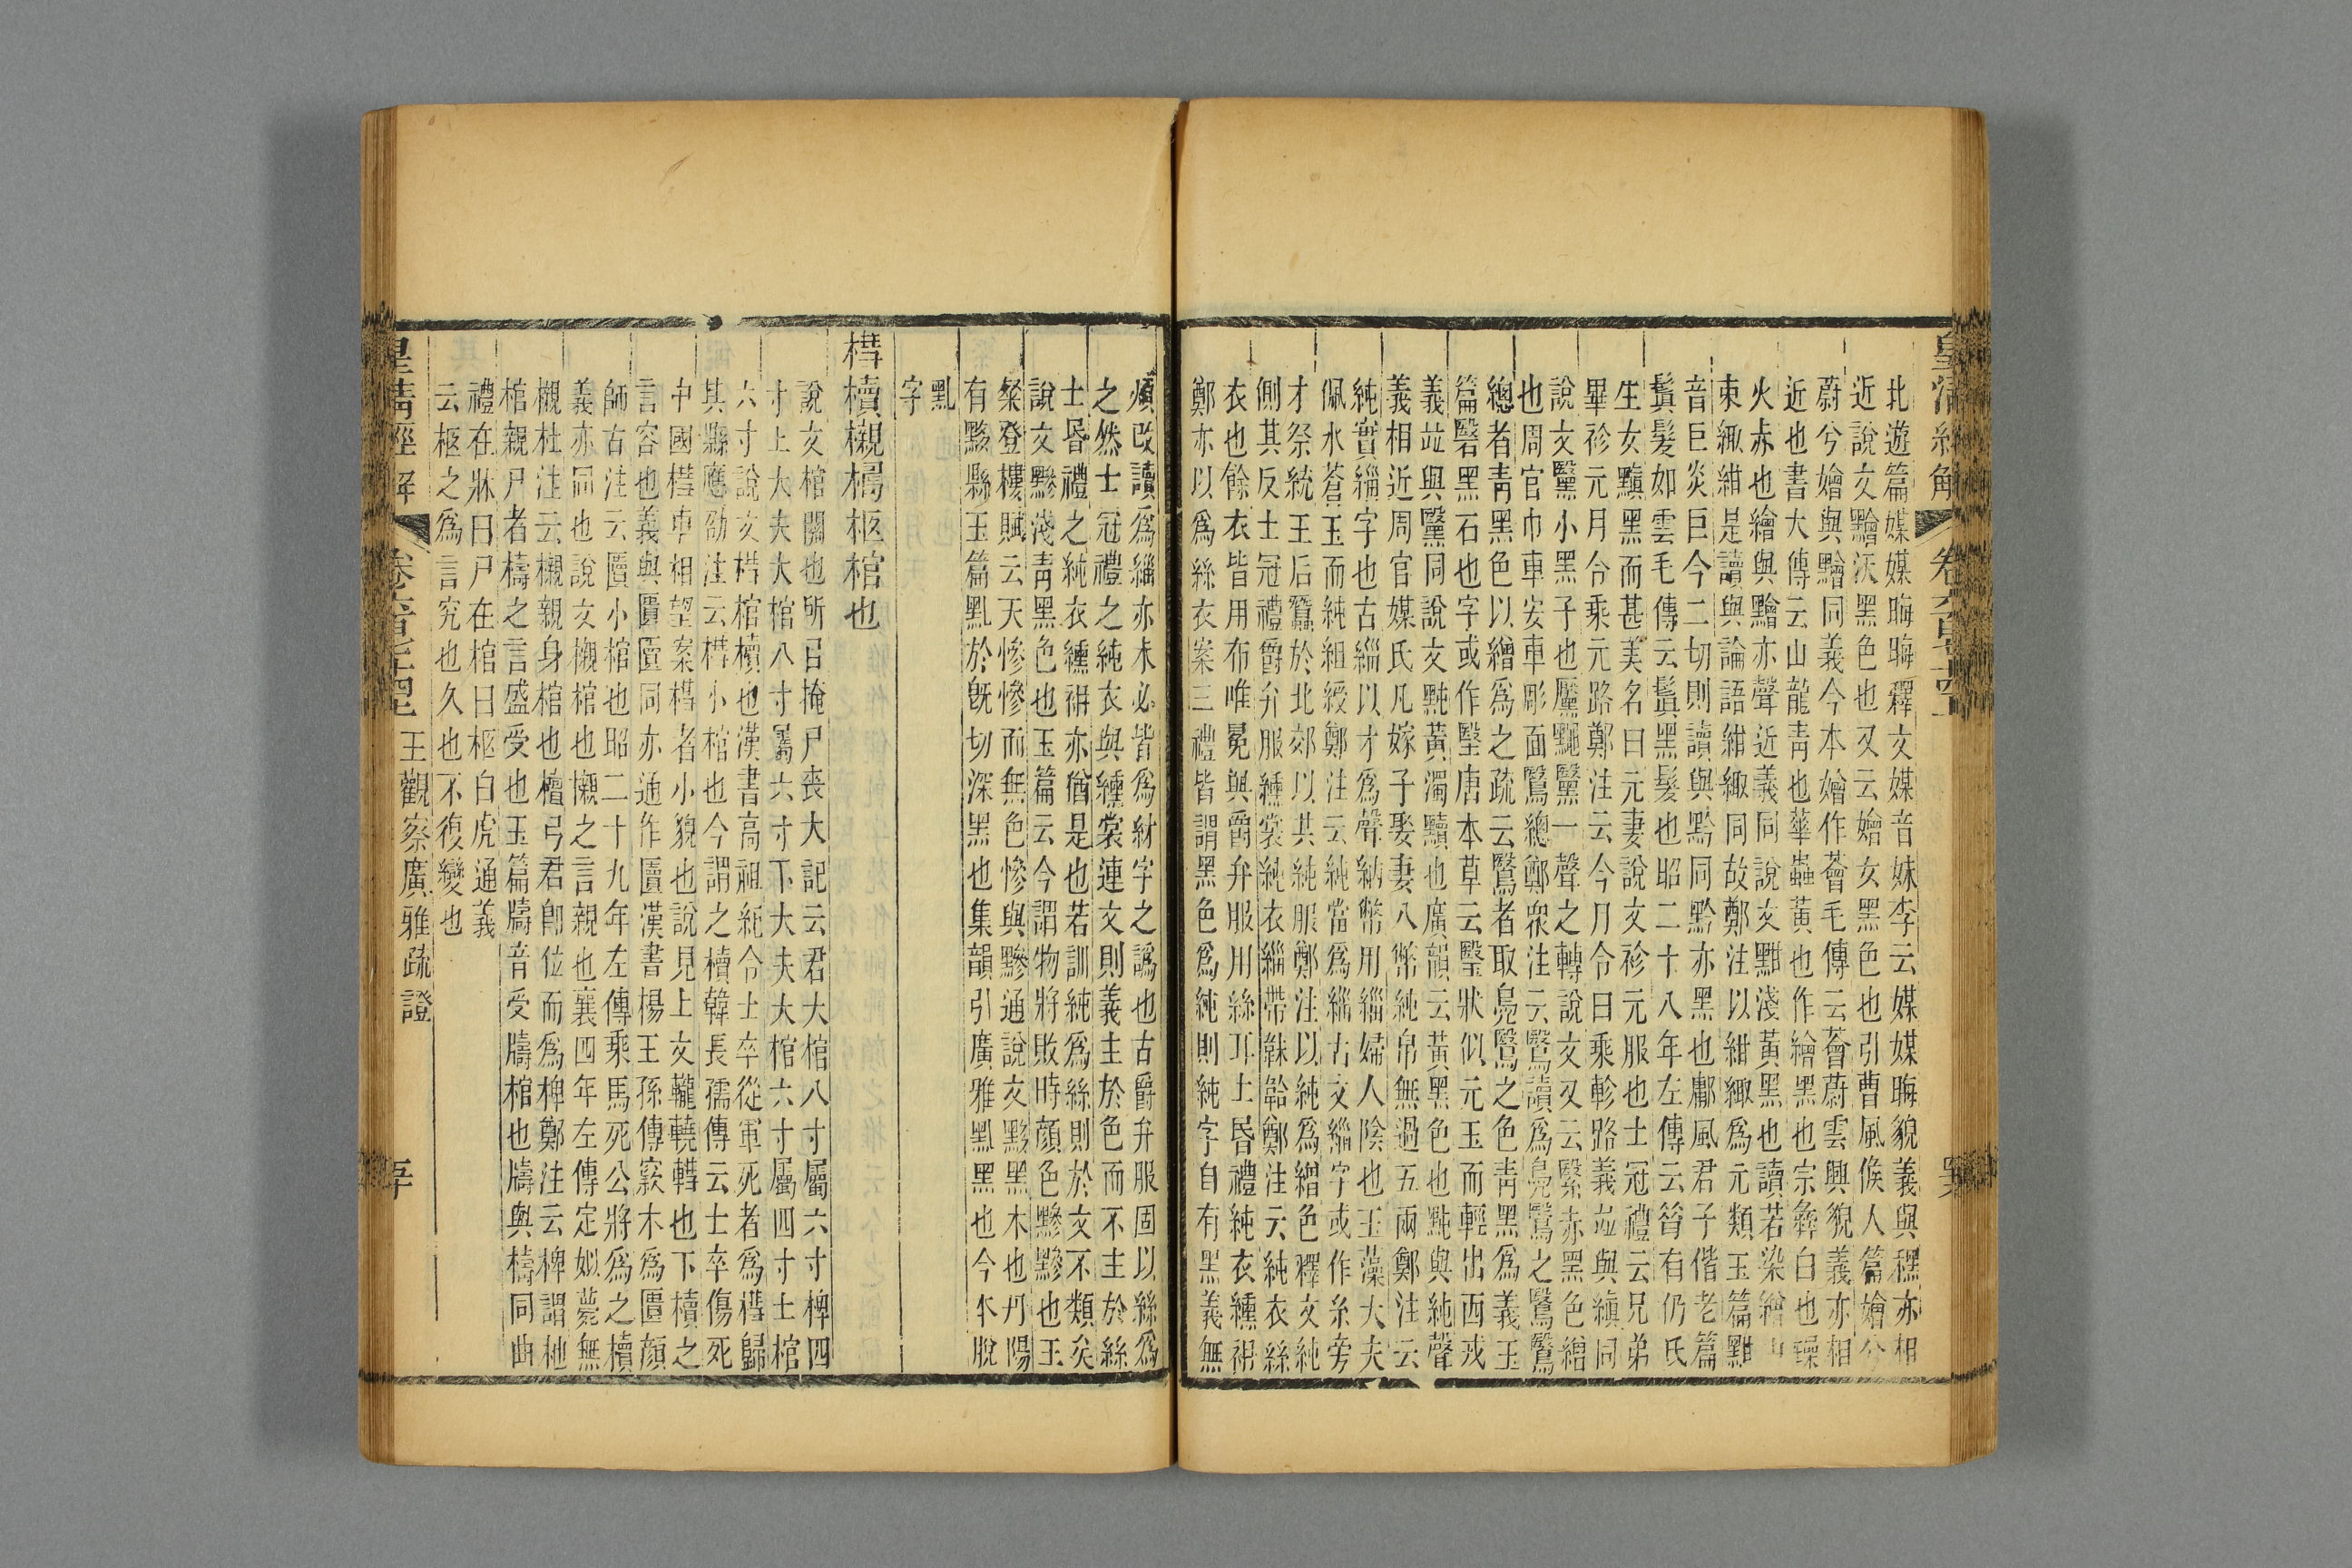 皇清經解
卷六百七十四上
北遊篇媒媒晦晦釋文媒音妹李云媒媒晦貌義與穤亦相
近說文黵沃黑色也又云嬒女黑色也引曹風候人篇嬒兮
蔚兮嬒與黵同義今本嬒作薈毛傳云薈蔚雲興貌義亦相
近也書大傳云山龍青也華蟲黃也作繪黑也宗彝白也璪
火赤也繪與黵亦聲近義同說文黚淺黃黑也讀若染繒
束緅紺是讀與論語紺緅同故鄭注以紺緅為元類玉篇黚
音巨炎巨今二切則讀與黔同黔亦黑也鄘風君子偕老篇
鬒髮如雲毛傳云鬒黑髮也昭二十八年左傳云昔有仍氏
生女黰黑而甚美名曰元妻說文袗元服也士冠禮云兄弟
畢袗元月令乘元路鄭注云今月令曰乘軫路義竝與縝同
說文黳小黑子也黶黸黳一聲之轉說文又云繄赤黑色繒
也周官巾車安車彫面鷖總鄭眾注云鷖讀為鳧鷖之鷖鷖
總者青黑色以繒為之疏云鷖者取鳧鷖之色青黑為義玉
篇毉黑石也字或作瑿唐本草云瑿狀似元玉而輕出西戎
義竝與黳同說文黗黃濁黷也廣韻云黃黑色也黗與純聲
義相近周官媒氏凡嫁子娶妻入幣純帛無過五兩鄭注云
純實緇字也古緇以才為聲納幣用緇婦人陰也玉藻大夫
佩水蒼玉而純組綬鄭注云純當為緇古文緇字或作糸旁
才祭統王后蠶於北郊以共純服鄭注以純為繒色釋文純
側其反士冠禮爵弁服纁裳純衣緇帶韎韐鄭注云純衣絲
衣也餘衣皆用布唯冕與爵弁服用絲耳士昏禮純衣纁袡
鄭亦以為絲衣案三禮皆謂黑色為純則純字自有黑義無
煩改讀為緇亦未必皆為紂字之譌也古爵弁服固以絲為
之然士冠禮之純衣與纁裳連文則義主於色而不主於絲
士昏禮之純衣纁袡亦猶是也若訓純為絲則於文不類矣
說文黲淺青黑色也玉篇云今謂物將敗時顏色黲黲也王
粲登樓賦云天慘慘而無色慘與黲通說文黟黑木也丹陽
有黟縣玉篇黓於旣切深黑也集韻引廣雅黓黑也今本脫
黓
字
槥櫝櫬梮柩棺也
說文棺關也所㠯掩尸喪大記云君大棺八寸屬六寸椑四
寸上大夫大棺八寸屬六寸下大夫大棺六寸屬四寸士棺
六寸說文槥棺櫝也漢書高祖紀令士卒從軍死者為槥歸
其縣應劭注云槥小棺也今謂之櫝韓長孺傳云士卒傷死
中國槥車相望案槥者小貌也說見上文䡺䡵轊也下櫝之
言容也義與匵匱同亦通作匵漢書楊王孫傳窾木為匵顏
師古注云匵小棺也昭二十九年左傳乘馬死公將為之櫝
義亦同也說文櫬棺也櫬之言親也襄四年左傳定姒薨無
櫬杜注云櫬親身棺也檀弓君卽位而為椑鄭注云椑謂杝
棺親尸者檮之言盛受也玉篇牘音受牘棺也牘與檮同曲
禮在牀曰尸在棺曰柩白虎通義
云柩之為言究也久也不復變也
皇清經解
卷六百七十四上
王觀察廣雅疏證